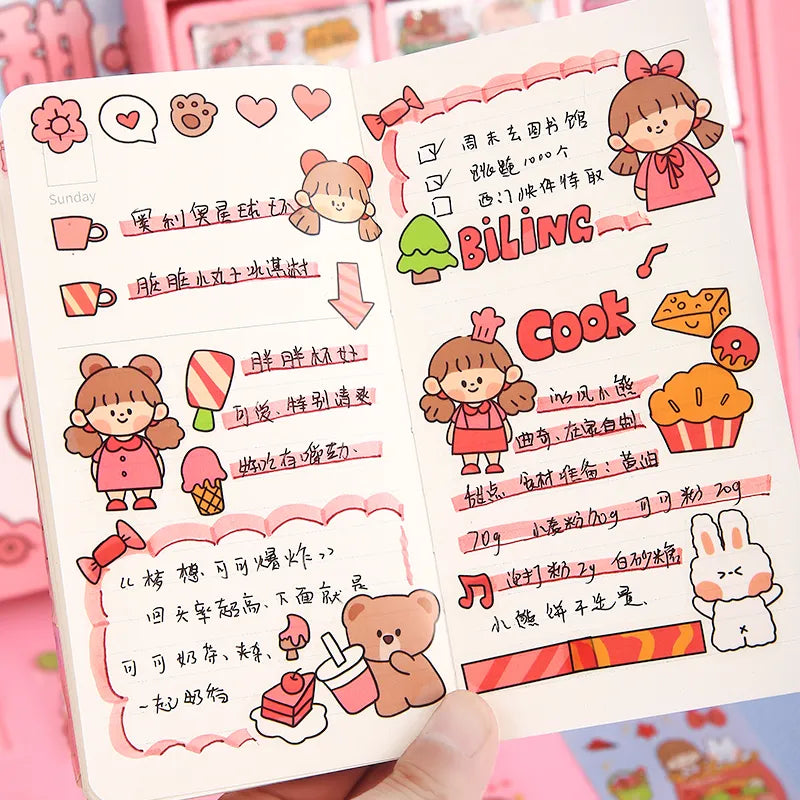 甜
Sunday
奥利奥星球杯
脏脏小丸子冰淇淋
胖胖杯好
可爱、特别清爽
特吃有嚼劲、
“梦想、可可爆炸”
回头率超高、下面就是
可可奶茶、
一起
周末去图书馆
跳跑1000个
西门快件待取
BiLiNG
COOK
小熊
曲奇、在家自制
甜点 食材准备：黄油
70g 小麦粉 可可粉 20g
泡打粉 2g 白砂糖
小熊饼干